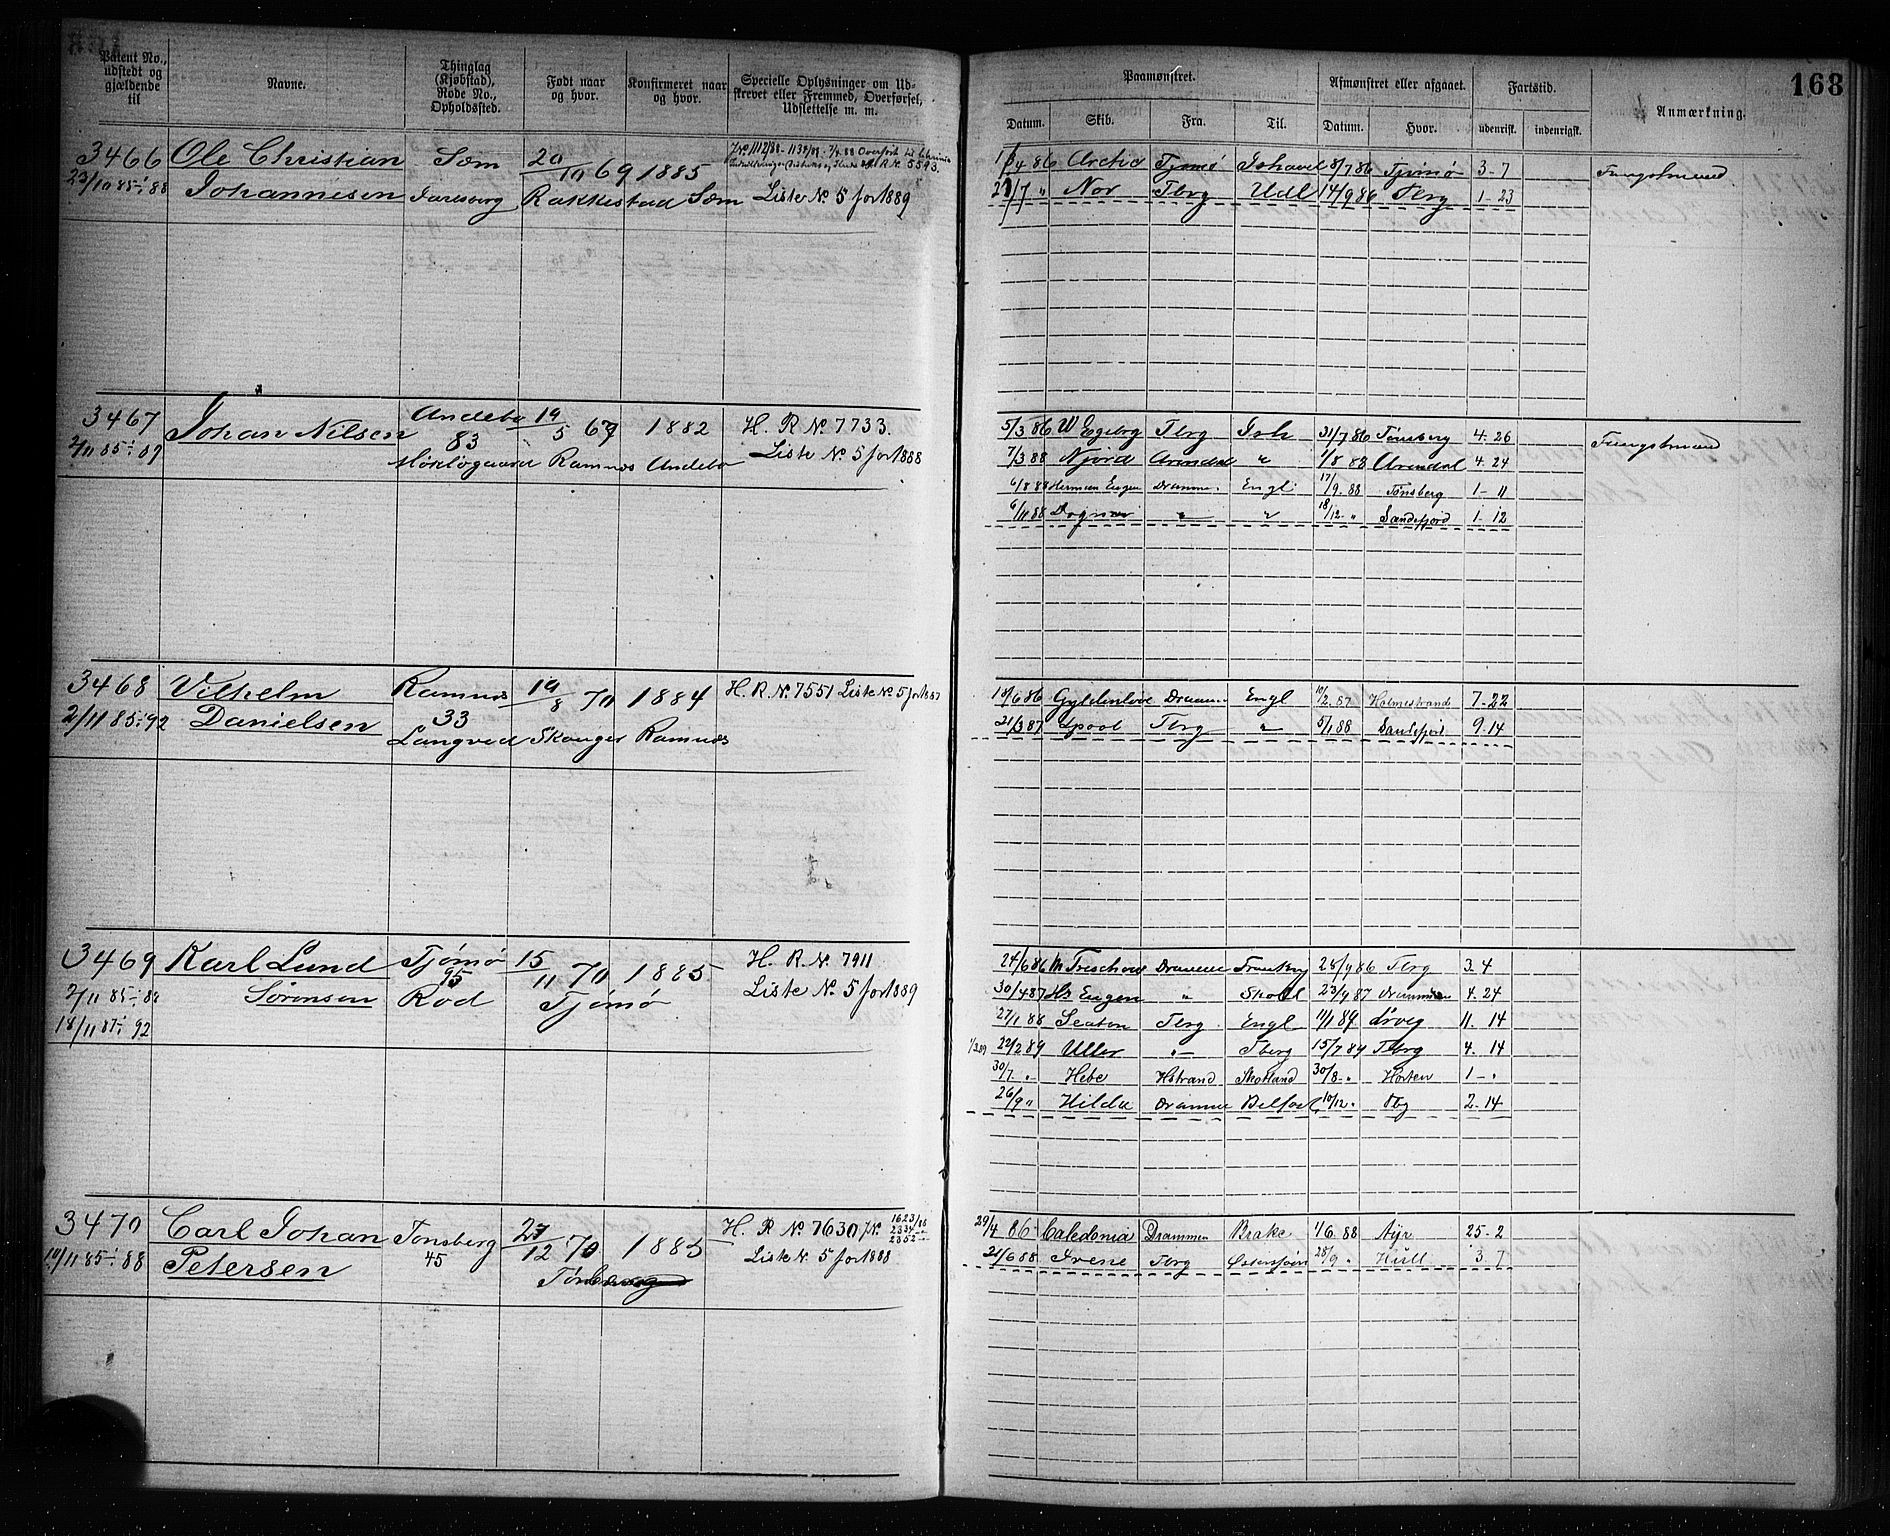 168
Patent No., udstedt og gjældende til
Navne.
Thinglag (Kjøbstad), Rode No., Opholdssted.
Født naar og hvor.
Konfirmeret naar og hvor.
Specielle Oplysninger om Udskrevet eller Fremmed, Overførsel, Udslettelse m. m.
Paamønstret.
Afmønstret eller afgaaet.
Fartstid.
Anmærkning.
Datum. Skib. Fra. Til. Datum. Hvor. udenrigsk. indenrigsk.
3466 Ole Christian Sæm 20/10 69 1885
23/10 85-88 Johannesen Jarlsberg Rakkestad Sæm Liste No. 5 for 1889
4 86 Arctic Tjømø Ishavet 8/7 86 Tjømø 3-7 Fungstmand
2/7 " Nor Tbrg Udl 14/9 86 Tbrg 1-23
3467 Johan Nilsen Andebo 19/5 69 1882 H. R. No 7733.
2/11 85-89 83 Ramnæs Andebo Liste No. 5 for 1888
5/3 86 Tbrg Ish 31/7 86 Tønsberg 4-26 Fungstmand
7/3 88 Njord Arendal " 1/8 88 Arendal 4-24
6/8 88 Herman Eugen Dramme. Engl. 17/9 88 Tønsberg 1-11
6/11 88 Dogmar " " 18/12 " Sandefjord 1-12
3468 Vilhelm Ramnæs 19/8 70 1884 H. R. No. 7551 Liste No. 5 for 1887
2/11 85-92 Danielsen 33
Langved Skouger Ramnæs
18/6 86 Gyldenløve Dramme Engl 10/2 87 Holmestrand 7-22
21/3 87 Spool Tbrg " 5/1 88 Sandefjord 9-14
3469 Karl Lund Tjømø 15/11 70 1885. H. R. No. 7911
2/11 85- Sørensen 95 Rød Tjømø Liste No. 5 for 1889
18/11 87- 92
24/6 86 Dramme 28/9 86 Tbrg 3-4
30/4 87 Hs Eugen " Skotl 23/9 87 Drammen 4-24
27/1 88 Seaton Tbrg. Engl 11/1 89 11-14
22/2 89 Uller " Tberg 15/7 89 Tbrg 4-14
30/7 " Hebe Hstrand Skotland 30/8 " Horten 1-"
26/9 " Hilda Dramme Belfast 10/12 " Tbg 2-14
3470 Carl Johan Tønsberg 27/12 70 1885 H. R No. 7630 No. 1623/86 2334 2852
10/11 85-88 Petersen 45 Tønsberg Liste No. 5 for 1888
29/4 86 Caledonia Drammen Brake 1/6 88 Ayr 25-2
21/6 88 Irene Tbrg Østersjøen 28/9 " Hull 3-7